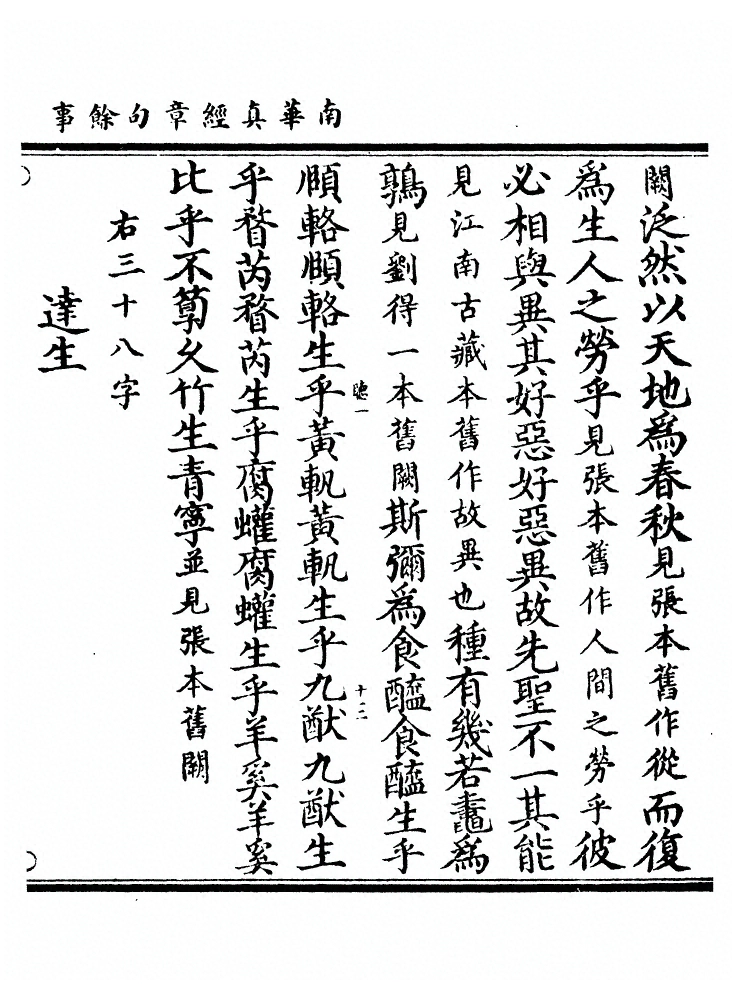 南華真經章句餘事
闕泛然以天地爲春秋見張本舊作從而復
爲生人之勞乎見張本舊作人間之勞乎彼
必相與異其好惡好惡異故先聖不一其能
見江南古藏本舊作故異也種有幾若鼃爲
鶉見劉得一本舊闕斯彌爲食醯食醯生乎
頤輅頤輅生乎黃軦黃軦生乎九猷九猷生
乎瞀芮瞀芮生乎腐蠸腐蠸生乎羊奚羊奚
比乎不箰久竹生青寧並見張本舊闕
右三十八字
達生
聽一
十二